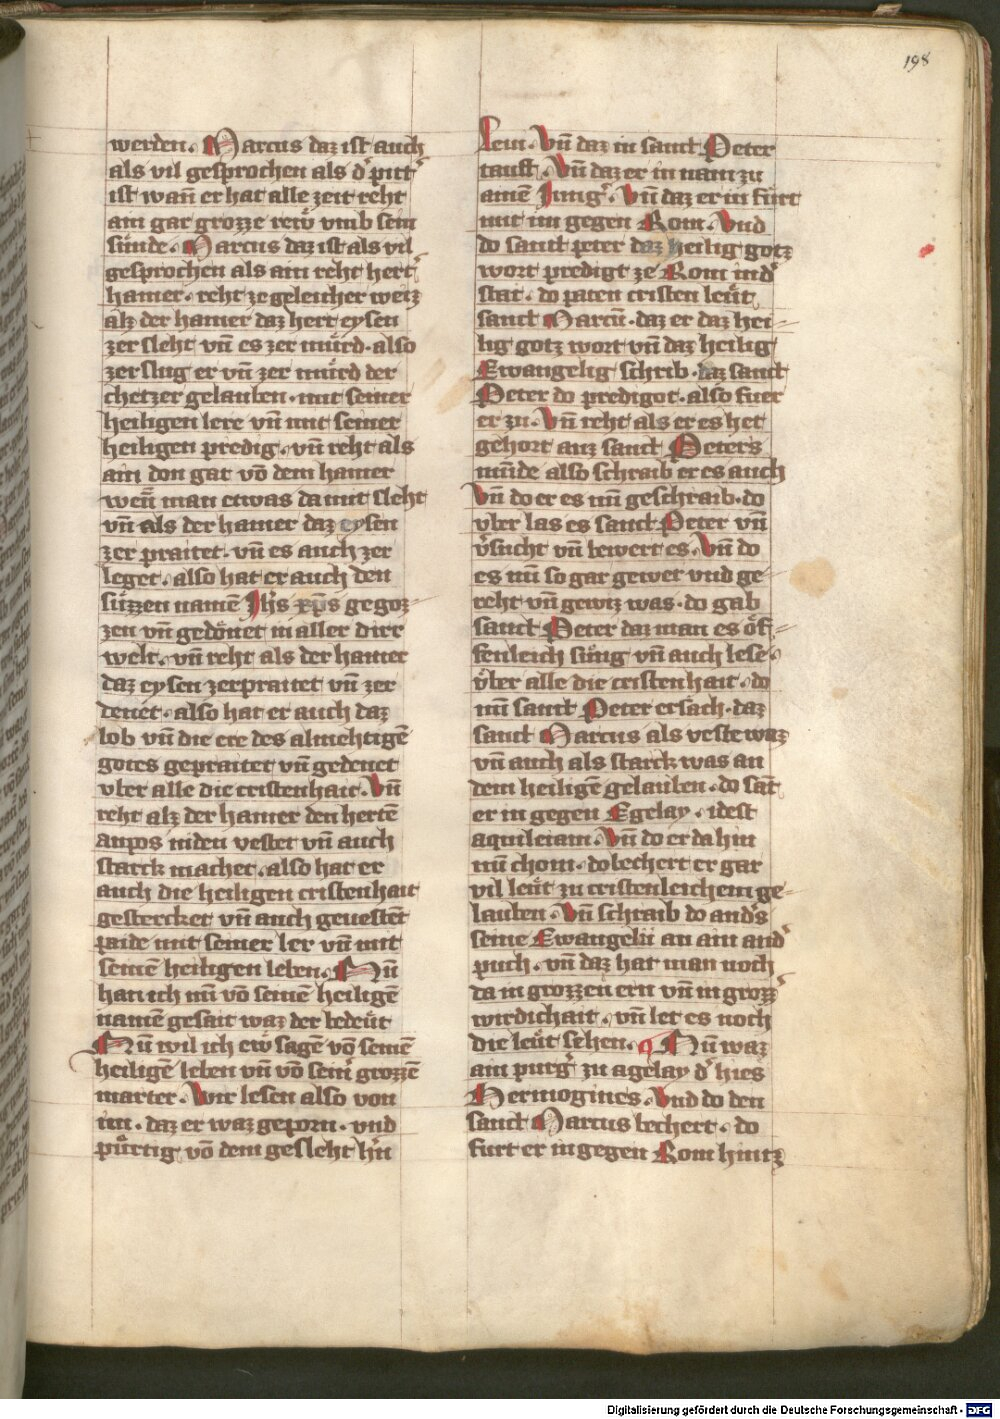 198
werden. Marcus daz ist auch
als vil gesprochen als d' pitt'
ist wañ er hat alle zeit reht
ain gar grozze rewͤ vmb sein
suͤnde. Marcus daz ist als vil
gesprochen als ain reht hert'
hamer. reht ze geleicher weiz
alz der hamer daz hert eysen
zer sleht vñ es zer muͤrd. also
zerslug er vñ zer muͤrd der
chetzer gelauben. mit seiner
heiligen lere vñ mit seiner
heiligen predig. vñ reht als
ain don gat võ dem hamer
wen̄ man etwas da mit sleht
vñ als der hamer daz eysen
zer praitet. vñ es auch zer
leget. also hat er auch den
suͤzzen namē Ihs xp̄s gegoz-
zen vñ gedoͤnet in aller dirr
welt. vñ reht als der hamer
daz eysen zerpraitet vñ zer
denet. also hat er auch daz
lob vñ die ere des almehtigē
gotes gepraitet vñ gedenet
vber alle die cristenhait. Vñ
reht alz der hamer den hertē
anpos niden vestet vñ auch
starck machet. also hat er
auch die heiligen cristenhait
gestercket vñ auch geuestēt
paide mit seiner ler vñ mit
seinē heiligen leben. Nũ
han ich nũ võ seinē heiligē
namē gesait waz der bedeuͤt
Nũ wil ich ewͤ sagē võ seinē
heiligē leben vñ võ sein' grozzē
marter. Wir lesen also von
im. daz er waz geporn. vnd
puͤrtig võ dem gesleht hin
Leui. Vñ daz in sanct Peter
tauft. Vñ daz er in nam zu
ainē Jung'. Vñ daz er in fuͤrt
mit im gegen Rom. Vnd
do sanct peter daz heilig gotz
wort predigt ze Rom in d'
stat. do paten cristen leuͤt
sanct Marcũ. daz er daz hei-
lig gotz wort vñ daz heilig
Ewangelig schrib. daz sanct
Peter do predigot. also fuer
er zu. Vñ reht als er es het
gehort auz sanct Peters
munde also schraib er es auch
Vñ do er es nũ geschraib. do
vber las es sanct Peter vñ
v'sucht vñ bewert es. Vñ do
es nũ so gar gewer vnd ge-
reht vñ gewiz was. do gab
sanct Peter daz man es oͤf-
fenleich suͤng vñ auch lese.
vͤber alle die cristenhait. do
nũ sanct Peter ersach. daz
sanct Marcus als veste waz
vñ auch als starck was an
dem heiligē gelauben. do sāt
er in gegen Egelay. idest
aquileiam. Vñ do er da hin
nũ chom. do bechert er gar
vil leuͤt zu cristenleichem ge-
lauben. Vñ schraib do and's
seine Ewangelii an ain and'
puch. vñ daz hat man noch
da in grozzen ern vñ in grozz'
wirdichait. vñ let es noch
die leuͤt sehen. Nũ waz
ain purg' zu agelay d' hies
Hermogines. Vnd do den
sanct Marcus bechert. do
furt er in gegen Rom hintz
Digitalisierung gefördert durch die Deutsche Forschungsgemeinschaft - DFG